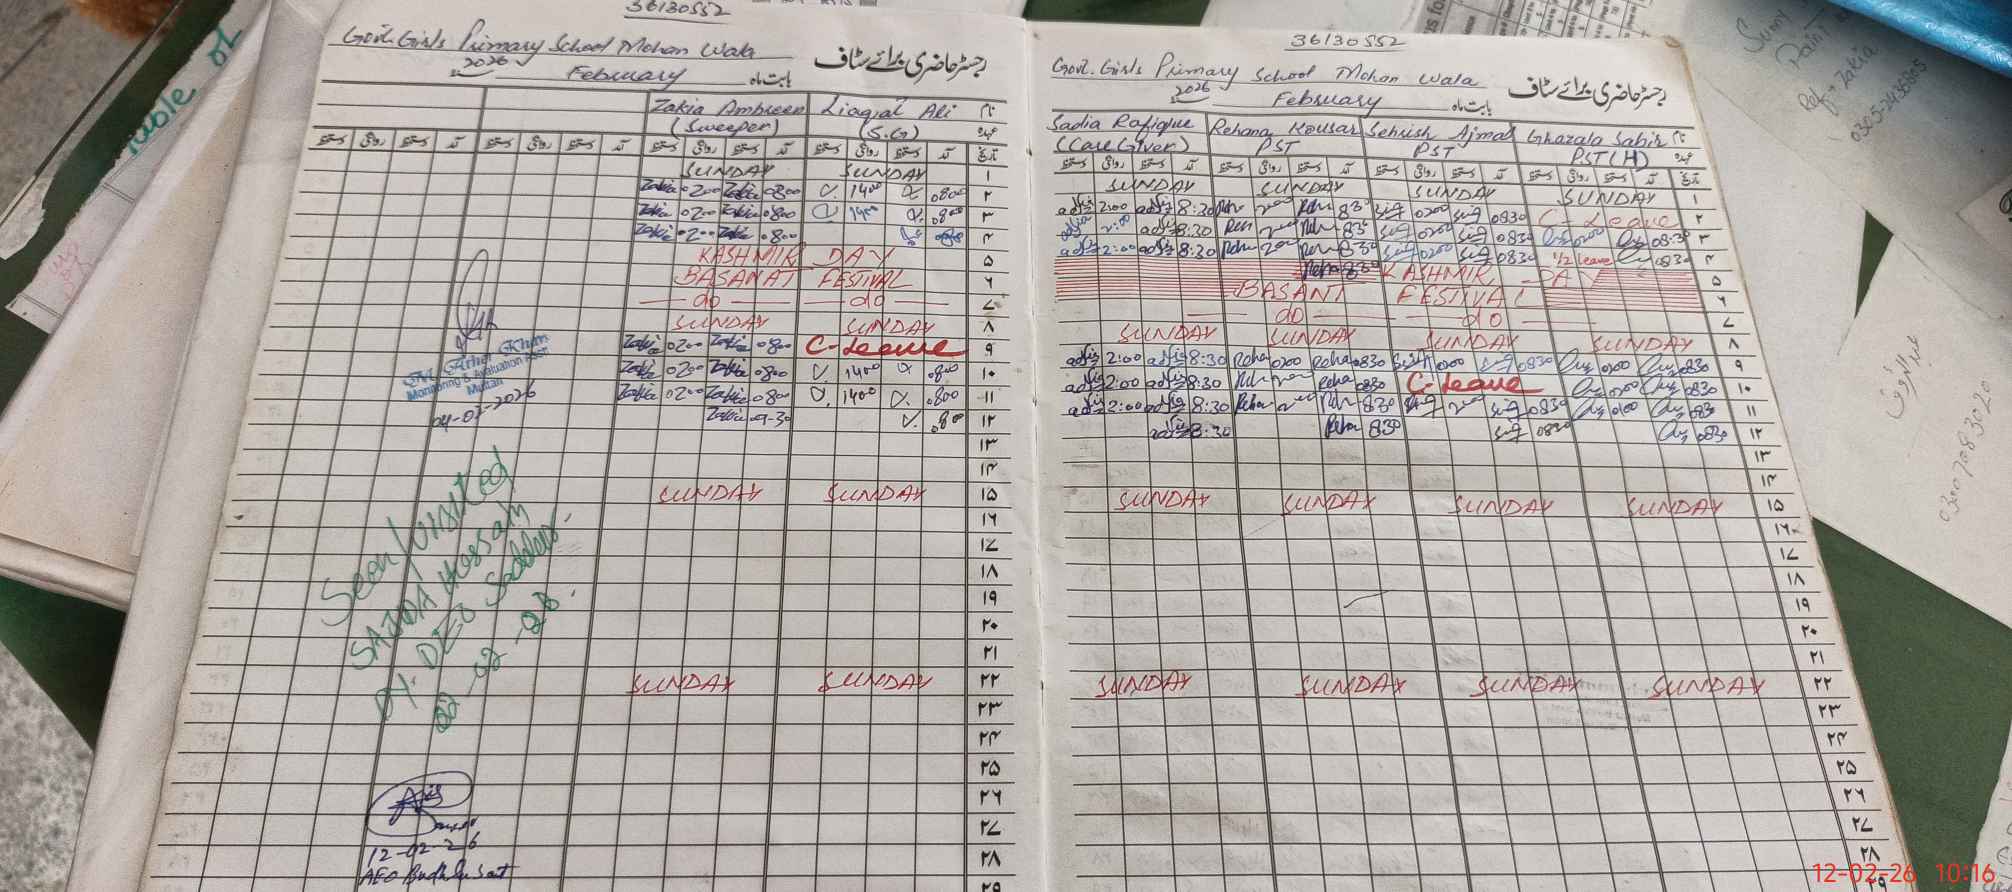 36130552
Govt. Girls Primary School Mohan Wala
رجسٹر حاضری برائے سٹاف
2026 February بابت ماہ
Zakia Ambreen Liaqat Ali نام
(Sweeper) (S.G) عہدہ
دستخط روانگی دستخط آمد دستخط روانگی دستخط آمد دستخط روانگی دستخط آمد دستخط روانگی دستخط آمد تاریخ
SUNDAY SUNDAY ۱
Zakia 0200 Zakia 0800 1400 0800 ۲
Zakia 0200 Zakia 0800 1400 0800 ۳
Zakia 0200 Zakia 0800 ۴
KASHMIR DAY ۵
BASANAT FESTIVAL ۶
do do ۷
SUNDAY SUNDAY ۸
Zakia 0200 Zakia 0800 C-Leave ۹
Zakia 0200 Zakia 0800 1400 0800 ۱۰
Zakia 0200 Zakia 0800 1400 0800 ۱۱
Zakia 09-30 0800 ۱۲
۱۳
۱۴
SUNDAY SUNDAY ۱۵
۱۶
۱۷
۱۸
۱۹
۲۰
۲۱
SUNDAY SUNDAY ۲۲
۲۳
۲۴
۲۵
۲۶
۲۷
۲۸
۲۹
Monitoring & Evaluation
Multan
04-02-2026
Seen/visited
SAJIDA
Dy. DEO Saddar
02-02-26
12-02-26
AEO Budhla Sant
36130552
Govt. Girls Primary School Mohan Wala
رجسٹر حاضری برائے سٹاف
2026 February بابت ماہ
Sadia Rafique Rehana Kousar Sehrish Ajmal Ghazala Sabir نام
(Care Giver) PST PST PST (H) عہدہ
دستخط روانگی دستخط آمد دستخط روانگی دستخط آمد دستخط روانگی دستخط آمد دستخط روانگی دستخط آمد تاریخ
SUNDAY SUNDAY SUNDAY SUNDAY ۱
2:00 8:30 Reha 200 Reha 830 0200 0830 C-Leave ۲
2:00 8:30 Reh 200 Reh 830 0200 0830 0200 08:30 ۳
2:00 8:30 Reha 200 Reha 830 0200 0830 1/2 leave 0830 ۴
Reha 830 KASHMIR DAY ۵
BASANT FESTIVAL ۶
do do ۷
SUNDAY SUNDAY SUNDAY SUNDAY ۸
2:00 8:30 Reha 0200 Reha 0830 0200 0830 0200 0830 ۹
2:00 8:30 Reha 200 Reha 0830 C-Leave 0200 0830 ۱۰
2:00 8:30 Reha 200 Reh 830 200 0830 0200 0830 ۱۱
8:30 Reha 830 0830 0830 ۱۲
۱۳
۱۴
SUNDAY SUNDAY SUNDAY SUNDAY ۱۵
۱۶
۱۷
۱۸
۱۹
۲۰
۲۱
SUNDAY SUNDAY SUNDAY SUNDAY ۲۲
۲۳
۲۴
۲۵
۲۶
۲۷
۲۸
۲۹
Sunny
Paint
Ref- Zakia
03007083020
12-02-26 10:16